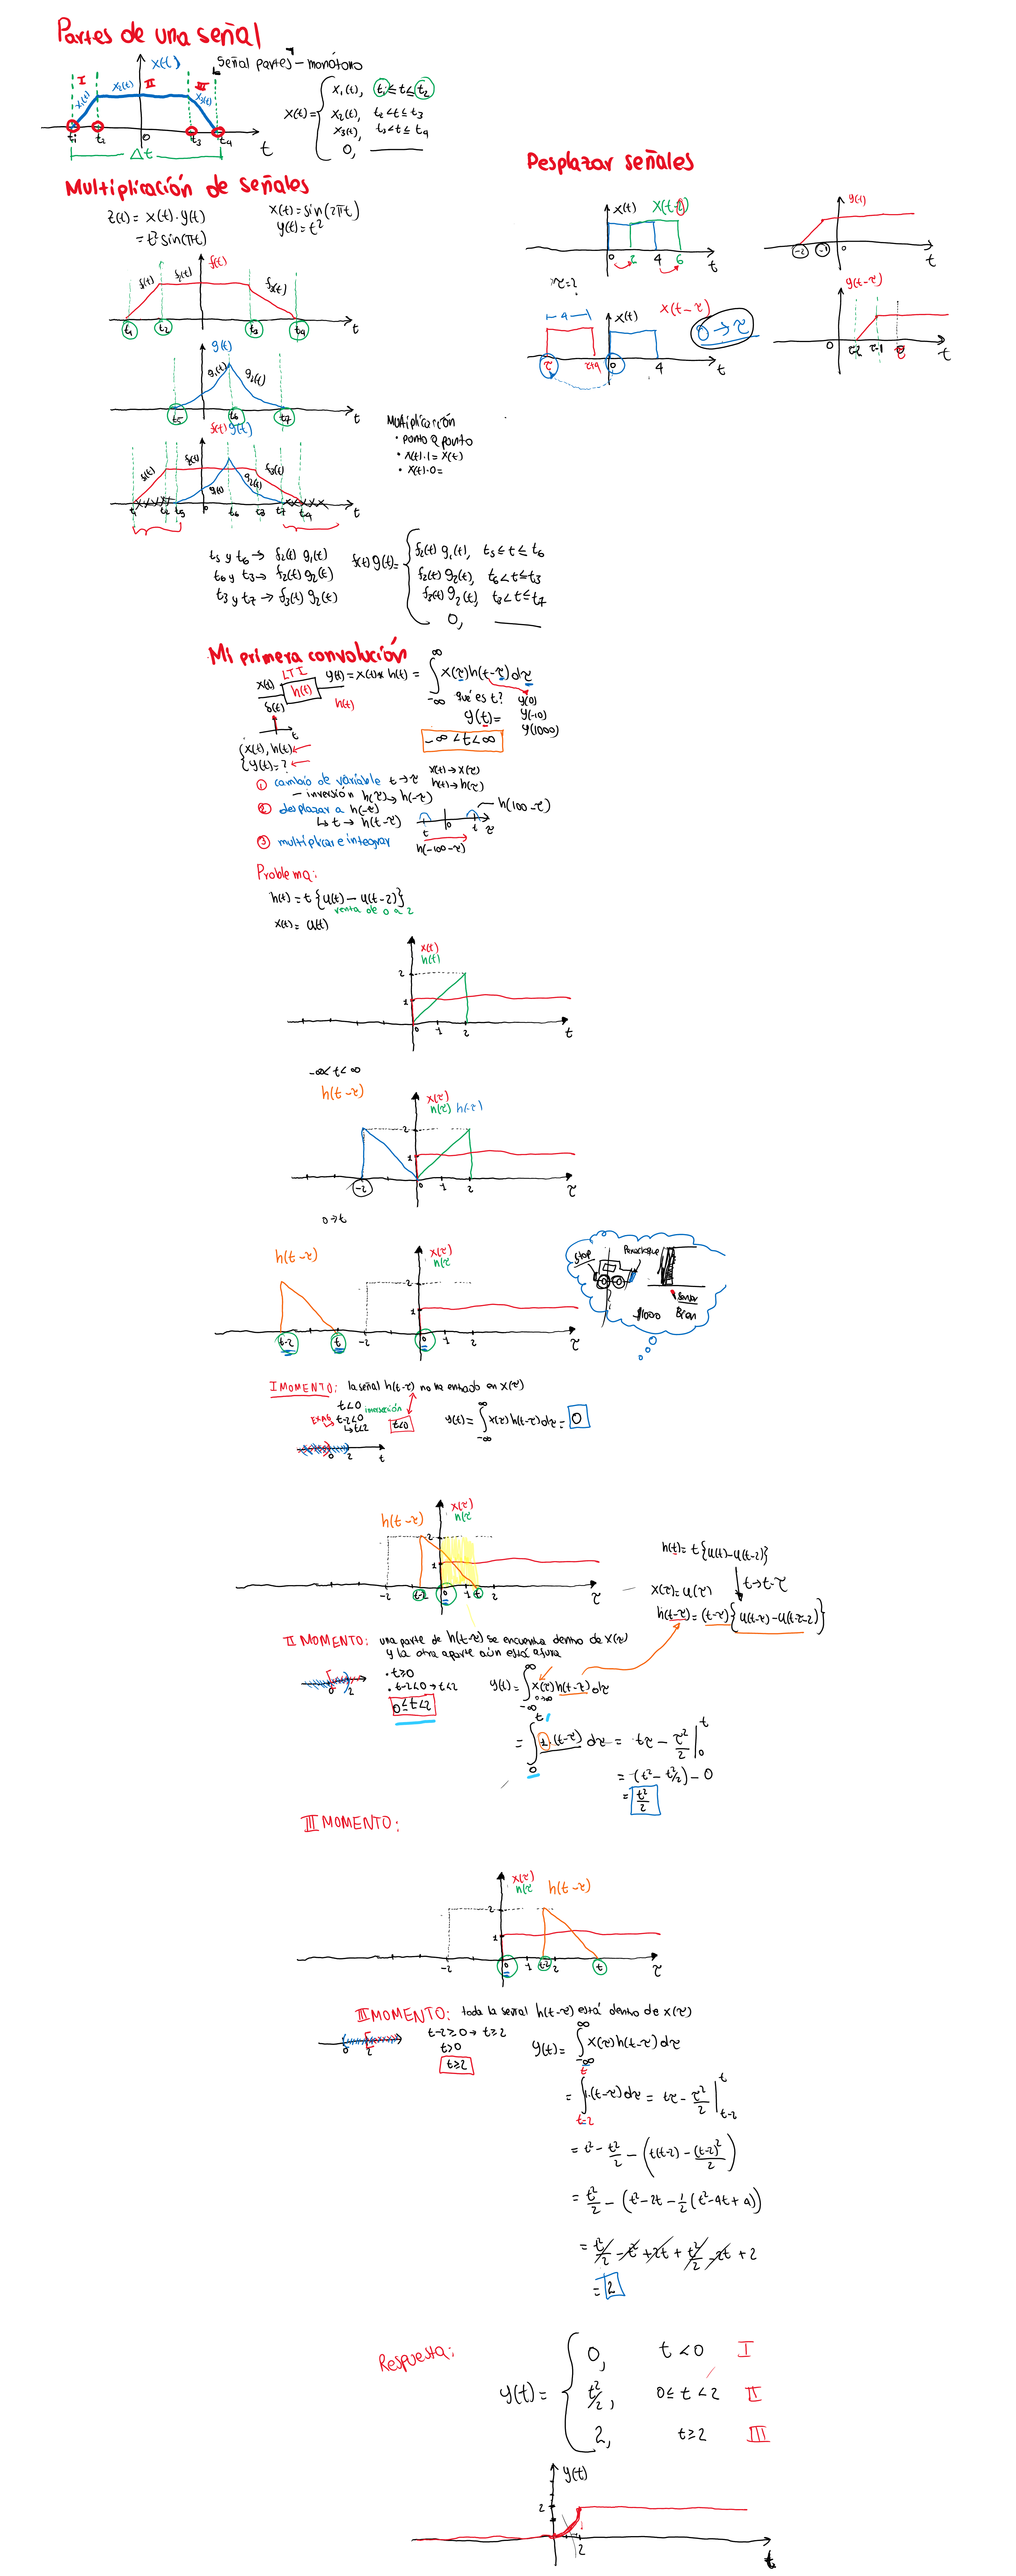 Partes de una señal
x(t)
Señal partes - monótono
I
II
III
x₁(t)
x₂(t)
x₃(t)
t₁
t₂
0
t₃
t₄
t
Δt
x(t) =
x₁(t), t₁ ≤ t ≤ t₂
x₂(t), t₂ < t ≤ t₃
x₃(t), t₃ < t ≤ t₄
0,
Multiplicación de señales
z(t) = x(t)·y(t)
x(t) = sin(2πt)
y(t) = t²
f(t)
f₁(t)
f₂(t)
f₃(t)
t₁
t₂
t₃
t₄
t
g(t)
g₁(t)
g₂(t)
t₅
t₆
t₇
t
f(t) g(t)
f₁(t)
f₂(t)
f₃(t)
g₁(t)
g₂(t)
t₁
t₂
t₅
0
t₆
t₃
t₇
t₄
t
Multiplicación
· punto a punto
· x(t)·1 = x(t)
· x(t)·0 =
t₅ y t₆ → f₂(t) g₁(t)
t₆ y t₃ → f₂(t) g₂(t)
t₃ y t₇ → f₃(t) g₂(t)
f(t) g(t) =
f₂(t) g₁(t), t₅ ≤ t ≤ t₆
f₂(t) g₂(t), t₆ < t ≤ t₃
f₃(t) g₂(t), t₃ < t ≤ t₇
0,
Desplazar señales
x(t)
x(t-2)
0
2
4
6
t
y(t)
-2
-1
0
t
4
x(t)
x(t-τ)
0 → τ
τ
τ+4
0
4
t
y(t-τ)
0
τ-2
τ-1
τ
t
Mi primera convolución
LTI
x(t)
h(t)
y(t) = x(t) * h(t) = ∫_{-∞}^{∞} x(τ) h(t-τ) dτ
δ(t)
h(t)
t
¿qué es t?
y(t) =
y(0)
y(-10)
y(1000)
-∞ < t < ∞
x(t), h(t)
y(t) = ?
① cambio de variable t → τ
x(t) → x(τ)
h(t) → h(τ)
- inversión h(τ) → h(-τ)
② desplazar a h(-τ)
↳ t → h(t-τ)
h(100-τ)
t
0
t
τ
h(-100-τ)
③ multiplicar e integrar
Problema:
h(t) = t {u(t) - u(t-2)}
x(t) = u(t)
x(t)
h(t)
2
1
0
1
2
t
-∞ < t < ∞
h(t-τ)
x(τ)
h(τ)
h(-τ)
2
1
-2
0
1
2
τ
0 → t
h(t-τ)
x(τ)
h(τ
2
1
t-2
t
-2
0
1
2
τ
Stop
Parachoque
Sensor
$1000
I MOMENTO: la señal h(t-τ) no ha entrado en x(τ)
t<0
intersección
t-2<0
↳ t<2
t<0
y(t) = ∫_{-∞}^{∞} x(τ) h(t-τ) dτ = 0
0
2
t
h(t-τ)
x(τ)
h(τ
2
1
-2
t-2
0
1
t
2
τ
h(t) = t {u(t) - u(t-2)}
t → t-τ
x(τ) = u(τ)
h(t-τ) = (t-τ) {u(t-τ) - u(t-τ-2)}
II MOMENTO: una parte de h(t-τ) se encuentra dentro de x(τ)
y la otra aparte aún está afuera
0
2
· t≥0
· t-2<0 → t<2
0≤t<2
y(t) = ∫_{-∞}^{∞} x(τ) h(t-τ) dτ
= ∫_{0}^{t} 1·(t-τ) dτ = tτ - τ²/2 |_{0}^{t}
= (t² - t²/2) - 0
= t²/2
III MOMENTO:
x(τ)
h(τ
h(t-τ)
2
1
-2
0
1
t-2
2
t
τ
III MOMENTO: toda la señal h(t-τ) está dentro de x(τ)
0
2
t-2≥0 → t≥2
t>0
t≥2
y(t) = ∫_{-∞}^{∞} x(τ) h(t-τ) dτ
= ∫_{t-2}^{t} 1·(t-τ) dτ = tτ - τ²/2 |_{t-2}^{t}
= t² - t²/2 - (t(t-2) - (t-2)²/2)
= t²/2 - (t² - 2t - 1/2 (t² - 4t + 4))
= t²/2 - t² + 2t + t²/2 - 2t + 2
= 2
Respuesta:
y(t) =
0, t<0 I
t²/2, 0≤t<2 II
2, t≥2 III
y(t)
2
2
t